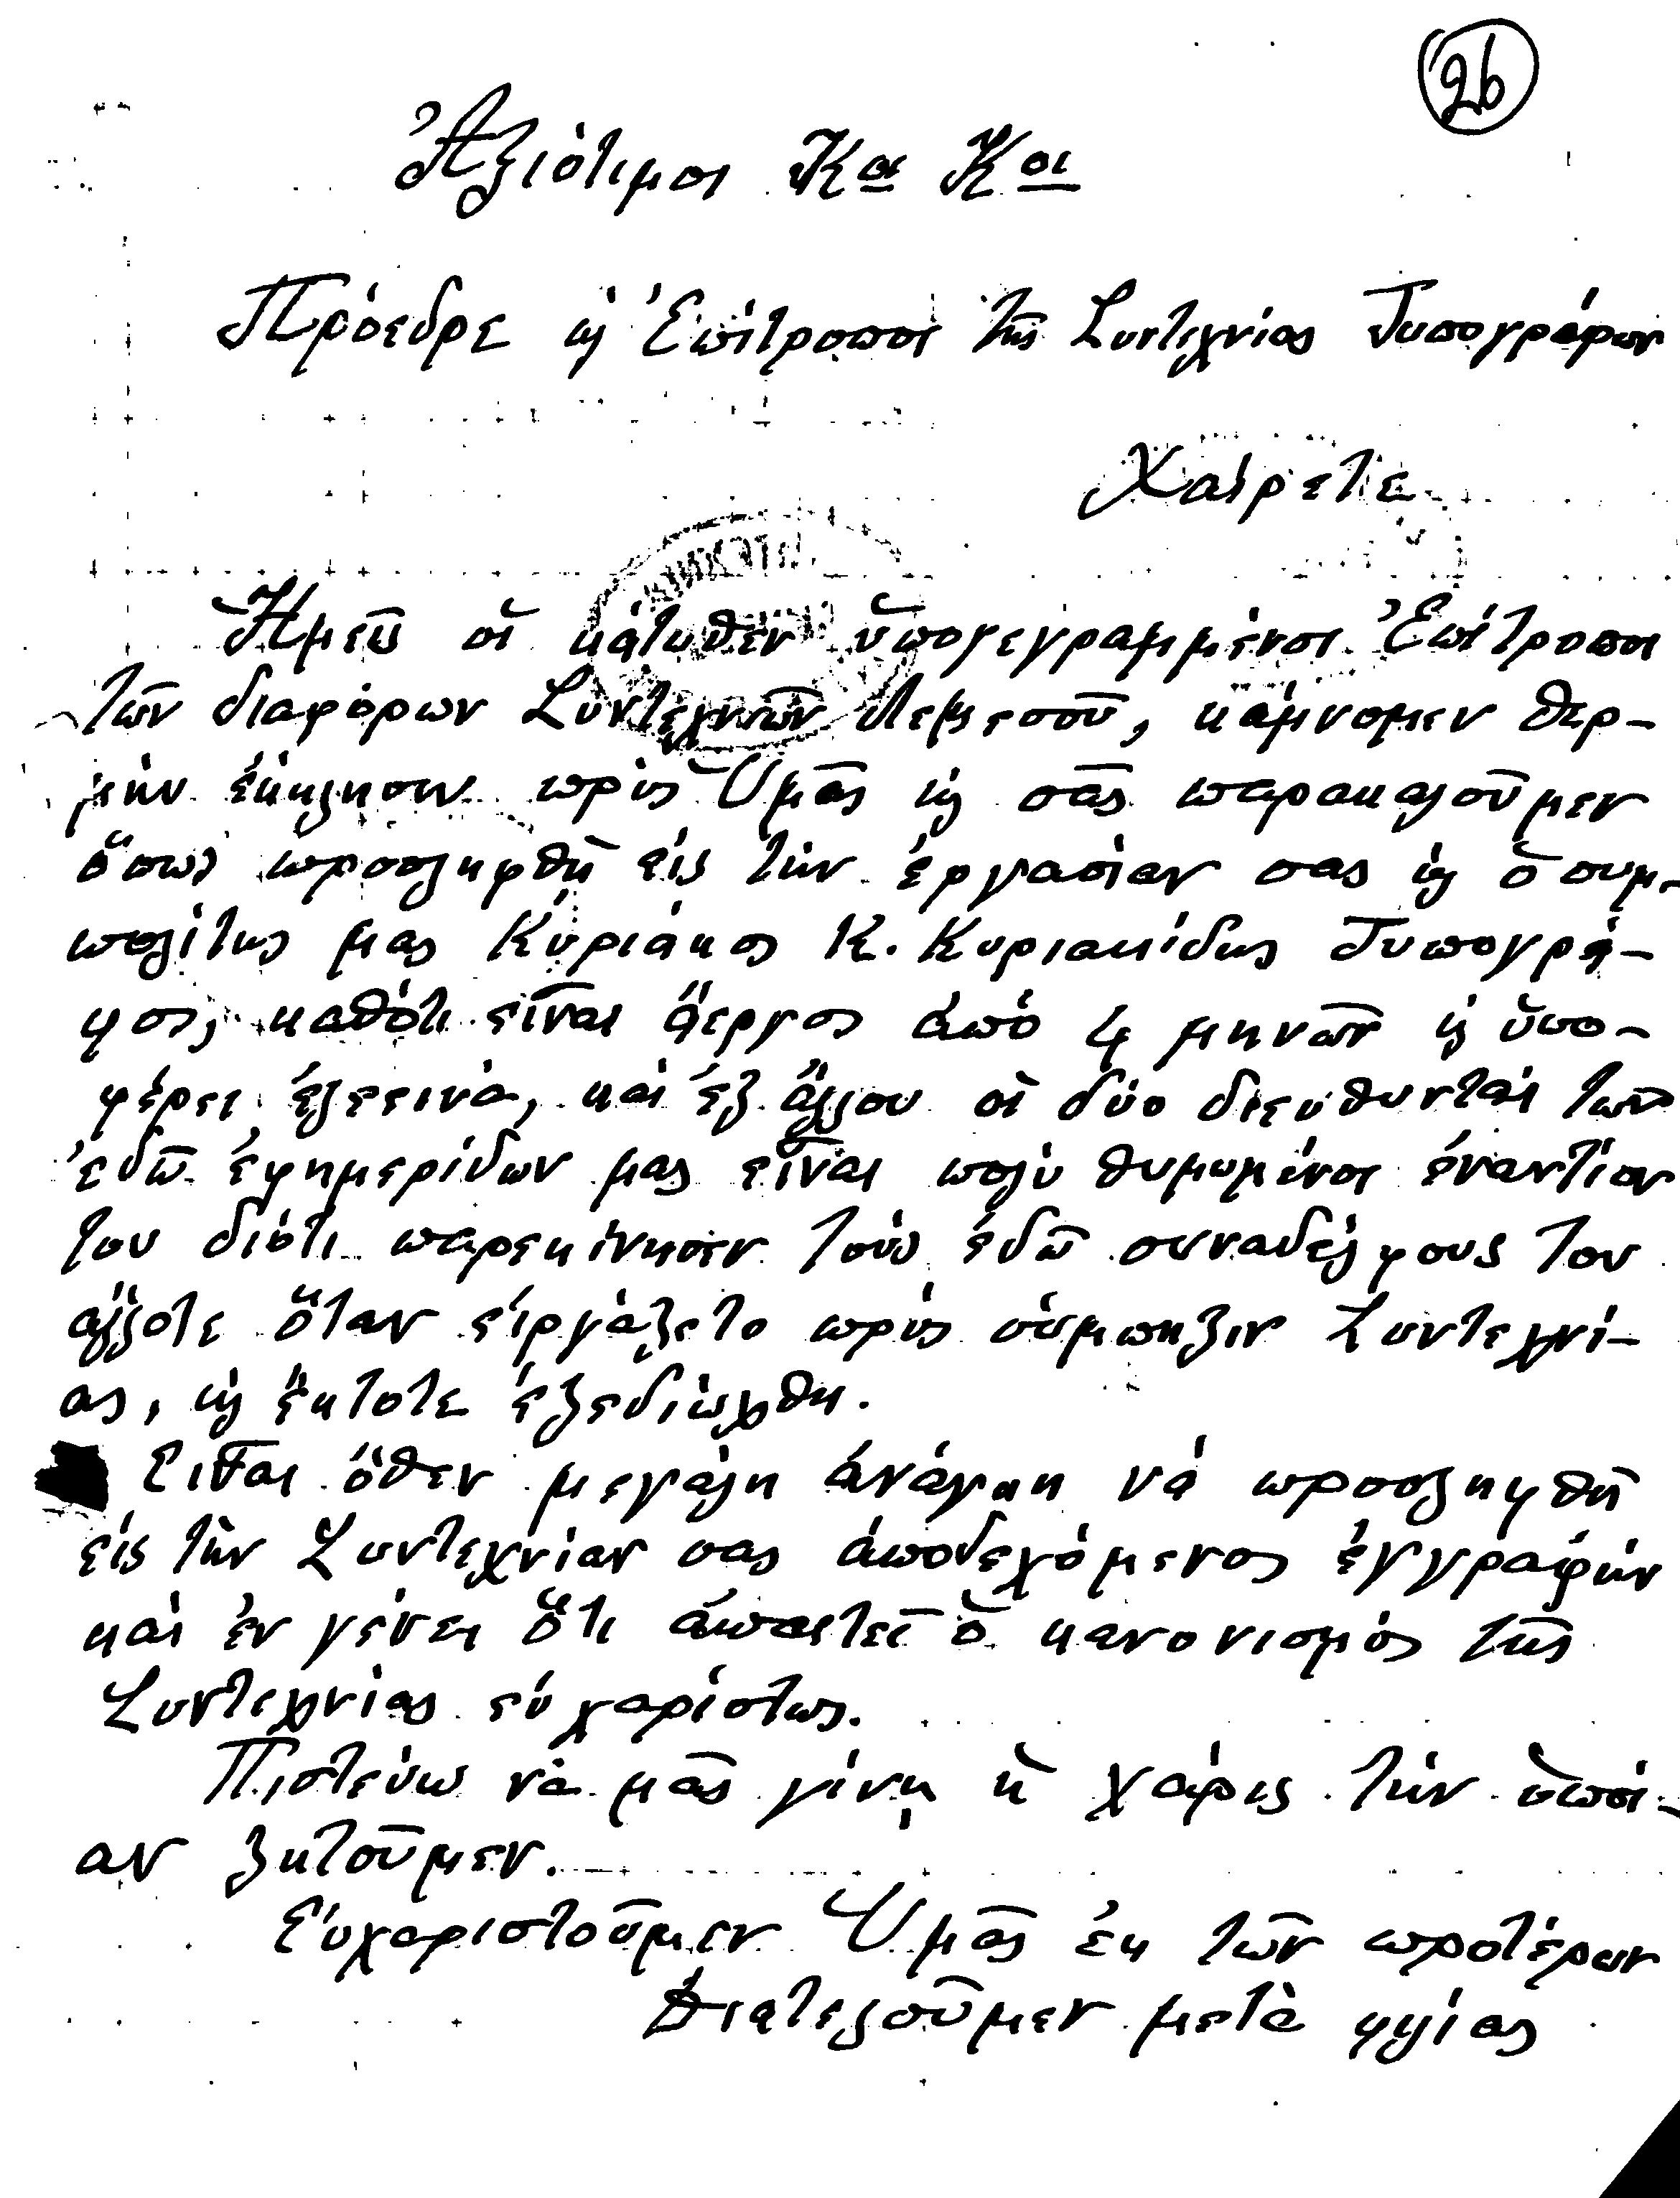 26
Ἀξιότιμοι Κα Κοι
Πρόεδρε ϗ Ἐπίτροποι τῆς Συντεχνίας Τυπογράφων
Χαίρετε
Ἡμεῖς οἱ κάτωθεν ὑπογεγραμμένοι Ἐπίτροποι
τῶν διαφόρων Συντεχνιῶν Λεμεσοῦ, κάμνομεν θερ-
μὴν ἔκκλησιν πρὸς Ὑμᾶς ϗ σᾶς παρακαλοῦμεν
ὅπως προσληφθῇ εἰς τὴν ἐργασίαν σας ϗ ὁ συμ-
πολίτης μας Κυριάκος Κ. Κυριακίδης Τυπογρά-
φος, καθότι εἶναι ἄεργος ἀπὸ 4 μηνῶν ϗ ὑπο-
φέρει ἐλεεινά, καὶ ἐξ ἄλλου οἱ δύο διευθυνταὶ τῶν
ἐδῶ ἐφημερίδων μας εἶναι πολὺ θυμωμένοι ἐναντίον
του διότι παρεκίνησεν τοὺς ἐδῶ συναδέλφους του
ἄλλοτε ὅταν εἰργάζετο πρὸς σύμπηξιν Συντεχνί-
ας, ϗ ἔκτοτε ἐξεδιώχθη.
Εἶναι ὅθεν μεγάλη ἀνάγκη νὰ προσληφθῇ
εἰς τὴν Συντεχνίαν σας ἀποδεχόμενος ἐγγραφήν
καὶ ἐν γένει ὅτι ἀπαιτεῖ ὁ κανονισμὸς τῆς
Συντεχνίας εὐχαρίστως.
Πιστεύω νὰ μᾶς γίνῃ ἡ χάρις τὴν ὁποί-
αν ζητοῦμεν.
Εὐχαριστοῦμεν Ὑμᾶς ἐκ τῶν προτέρων
Διατελοῦμεν μετὰ φιλίας